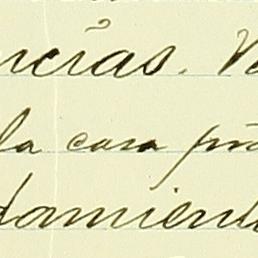 ncias. V
la casa pri
damient